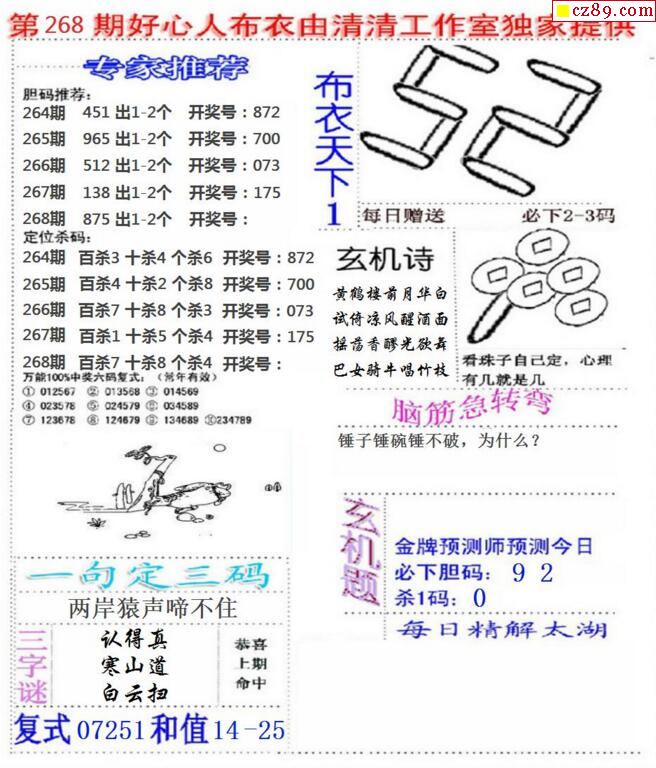 cz89.com
第268期好心人布衣由清清工作室独家提供
专家推荐
胆码推荐:
264期 451 出1-2个 开奖号:872
265期 965 出1-2个 开奖号:700
266期 512 出1-2个 开奖号:073
267期 138 出1-2个 开奖号:175
268期 875 出1-2个 开奖号:
定位杀码:
264期 百杀3 十杀4 个杀6 开奖号:872
265期 百杀4 十杀2 个杀8 开奖号:700
266期 百杀7 十杀8 个杀3 开奖号:073
267期 百杀1 十杀5 个杀4 开奖号:175
268期 百杀7 十杀8 个杀4 开奖号:
万能100%中奖六码复式:(常年有效)
① 012567 ② 013568 ③ 014569
④ 023578 ⑤ 024579 ⑥ 034589
⑦ 123678 ⑧ 124679 ⑨ 134689 ⑩234789
一句定三码
两岸猿声啼不住
三字谜
认得真
寒山道
白云扫
恭喜
上期
命中
复式07251和值14-25
布衣天下1
每日赠送 必下2-3码
玄机诗
黄鹤楼前月华白
试倚凉风醒酒面
摇荡香醪光欲舞
巴女骑牛唱竹枝
看珠子自己定,心理
有几就是几
脑筋急转弯
锤子锤碗锤不破,为什么?
玄机题
金牌预测师预测今日
必下胆码:9 2
杀1码:0
每日精解太湖